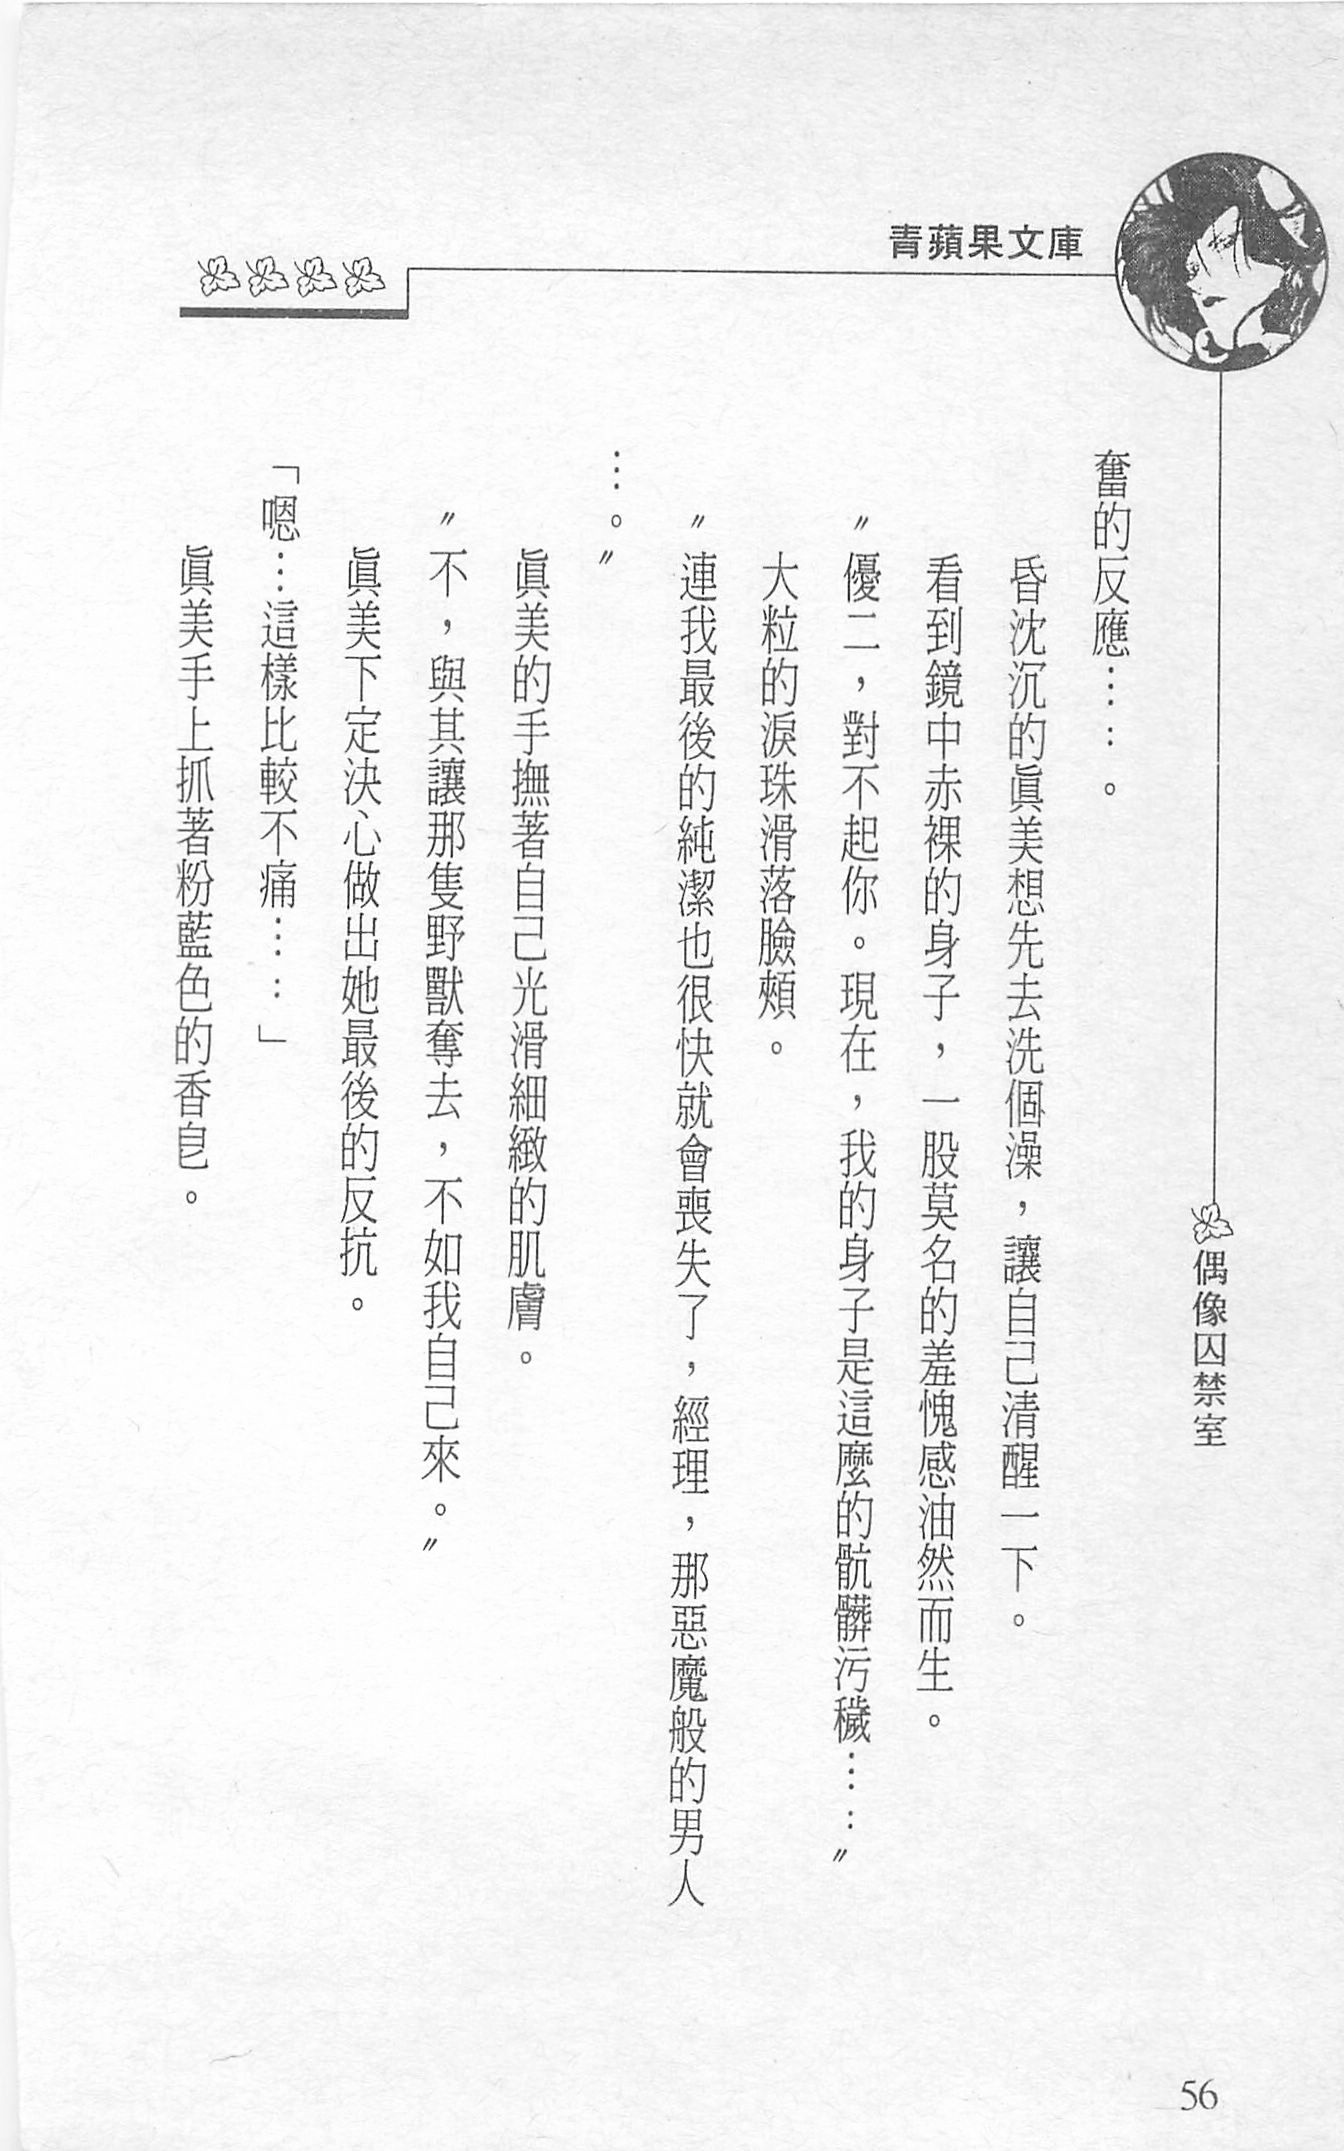 青蘋果文庫
偶像囚禁室
奮的反應……。
昏沈沉的眞美想先去洗個澡，讓自己清醒一下。
看到鏡中赤裸的身子，一股莫名的羞愧感油然而生。
〝優二，對不起你。現在，我的身子是這麼的骯髒污穢……〞
大粒的淚珠滑落臉頰。
〝連我最後的純潔也很快就會喪失了，經理，那惡魔般的男人
…。〞
眞美的手撫著自己光滑細緻的肌膚。
〝不，與其讓那隻野獸奪去，不如我自己來。〞
眞美下定決心做出她最後的反抗。
「嗯…這樣比較不痛……」
眞美手上抓著粉藍色的香皂。
56